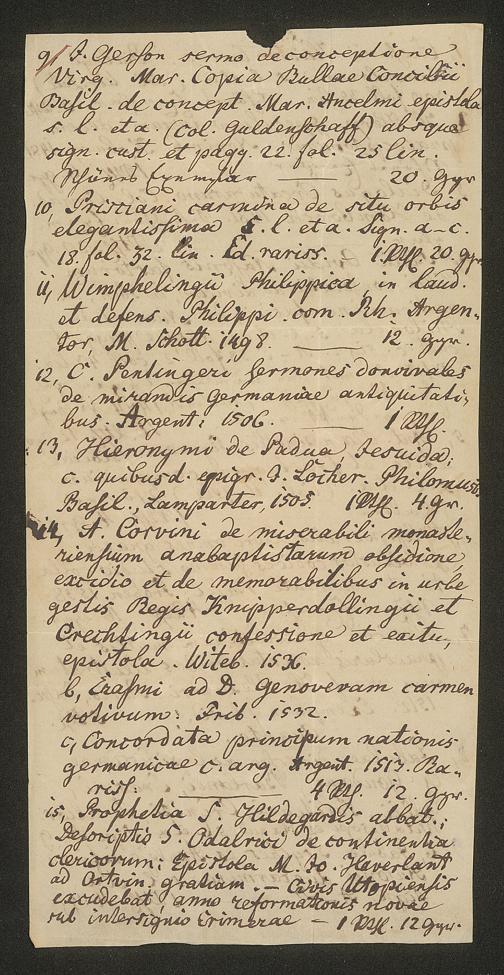 9, J. Gerson sermo de conceptione
Virg. Mar. Copia Bullae Concilii
Basil. de concept. Mar. Ancelmi epistola
s. l. et a. (col. Guldenschaff) absque
sign. cust. et pagg. 22. fol. 25 lin.
Exemplar — 20. ggr
10, Prisciani carmina de situ orbis
elegantissima s. l. et a. sign. a-c.
18. fol. 32. lin. Ed. rariss. 1 Rthl. 20. ggr
11, Wimphelingii Philippica in laud.
et defens. Philippi com. Rh. Argen-
tor, M. Schott. 1498. — 12. ggr.
12, C. Pentingeri sermones donvivales
de mirandis Germaniae antiquitati-
bus. Argent: 1506. — 1 Rthl.
13, Hieronymi de Padua, Jesuida;
c. quibusd. epigr. J. Locher. Philomusi
Basil., Lamparter, 1505. 1 Rthl. 4 gr.
14, A. Corvini de miserabili monaste-
riensium anabaptistarum obsidione
excidio et de memorabilibus in urbe
gestis Regis Knipperdollingii et
Crechtingii confessione et exitu,
epistola. Witeb. 1536.
b, Erasmi ad D. Genovevam carmen
votivum. Frib. 1532.
c, Concordata principum nationis
germanicae c. arg. Argent. 1513. Ra-
riss. — 4 Rthl. 12. ggr.
15, Prophetia S. Hildegardis abbat.;
Descriptio S. Odalrici de continentia
clericorum; Epistola M. Jo. Haverlant
ad Ortvin. gratiam. — Civis Utopiensis
excudebat anno reformationis novae
sub intersignio Crimerae — 1 Rthl. 12 ggr.